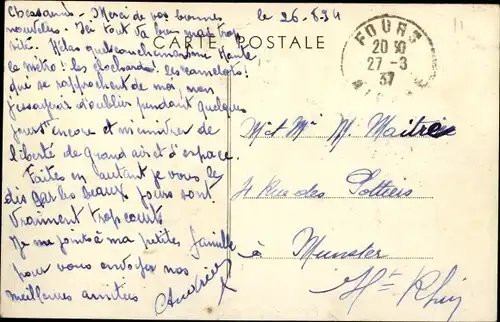 le 26.8.34
CARTE POSTALE
Merci de vos bonnes
nouvelles. Ici tout va bien
sité. Hélas
le métro! les clochards! les camelots!
qui se rapprochent de moi, mais
j'essaye d'oublier pendant quelques
jours encore et m'enivrer de
liberté de grand air et d'espace.
Faites en autant je vous le
dis car les beaux jours sont
vraiment trop courts
Je me joins à ma petite famille
pour vous envoyer nos
meilleures amitiés
20 30
27-3
37
Mr et Mme M. Maitre
4 Rue des Potiers
à Munster
Ht Rhin